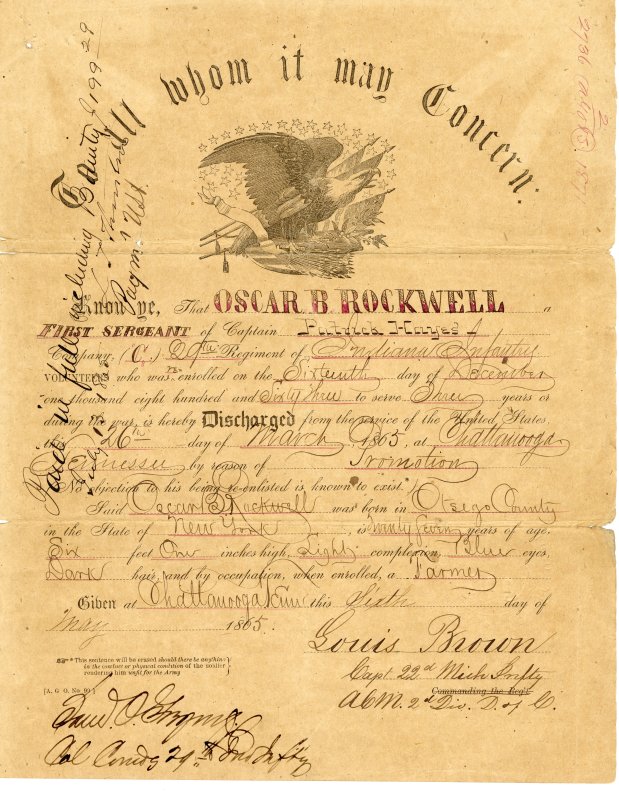 To All whom it may Concern:
Know ye, That OSCAR B. ROCKWELL a
FIRST SERGEANT of Captain Patrick Hayes'
Company, (C,) 29th Regiment of Indiana Infantry
VOLUNTEERS who was enrolled on the Sixteenth day of December
one thousand eight hundred and Sixty Three to serve Three years or
during the war, is hereby Discharged from the service of the United States,
this 26th day of March 1865, at Chattanooga
Tennessee by reason of Promotion
No objection to his being re-enlisted is known to exist.*
Said Oscar B. Rockwell was born in Otsego County
in the State of New York, is twenty Seven years of age,
Six feet One inches high, Light complexion, Blue eyes,
Dark hair, and by occupation, when enrolled, a Farmer
Given at Chattanooga Tenn this Sixth day of
May 1865.
Louis Brown
Capt 22d Mich Infty
Commanding the Reg't
A.C.M. 2d Div. D. of C.
* This sentence will be erased should there be anything
in the conduct or physical condition of the soldier
rendering him unfit for the Army
[A. G. O. No. 99.]
Col Comdg 29th Ind Infty
Paid in full including Bounty $199 29
Paym US
1871